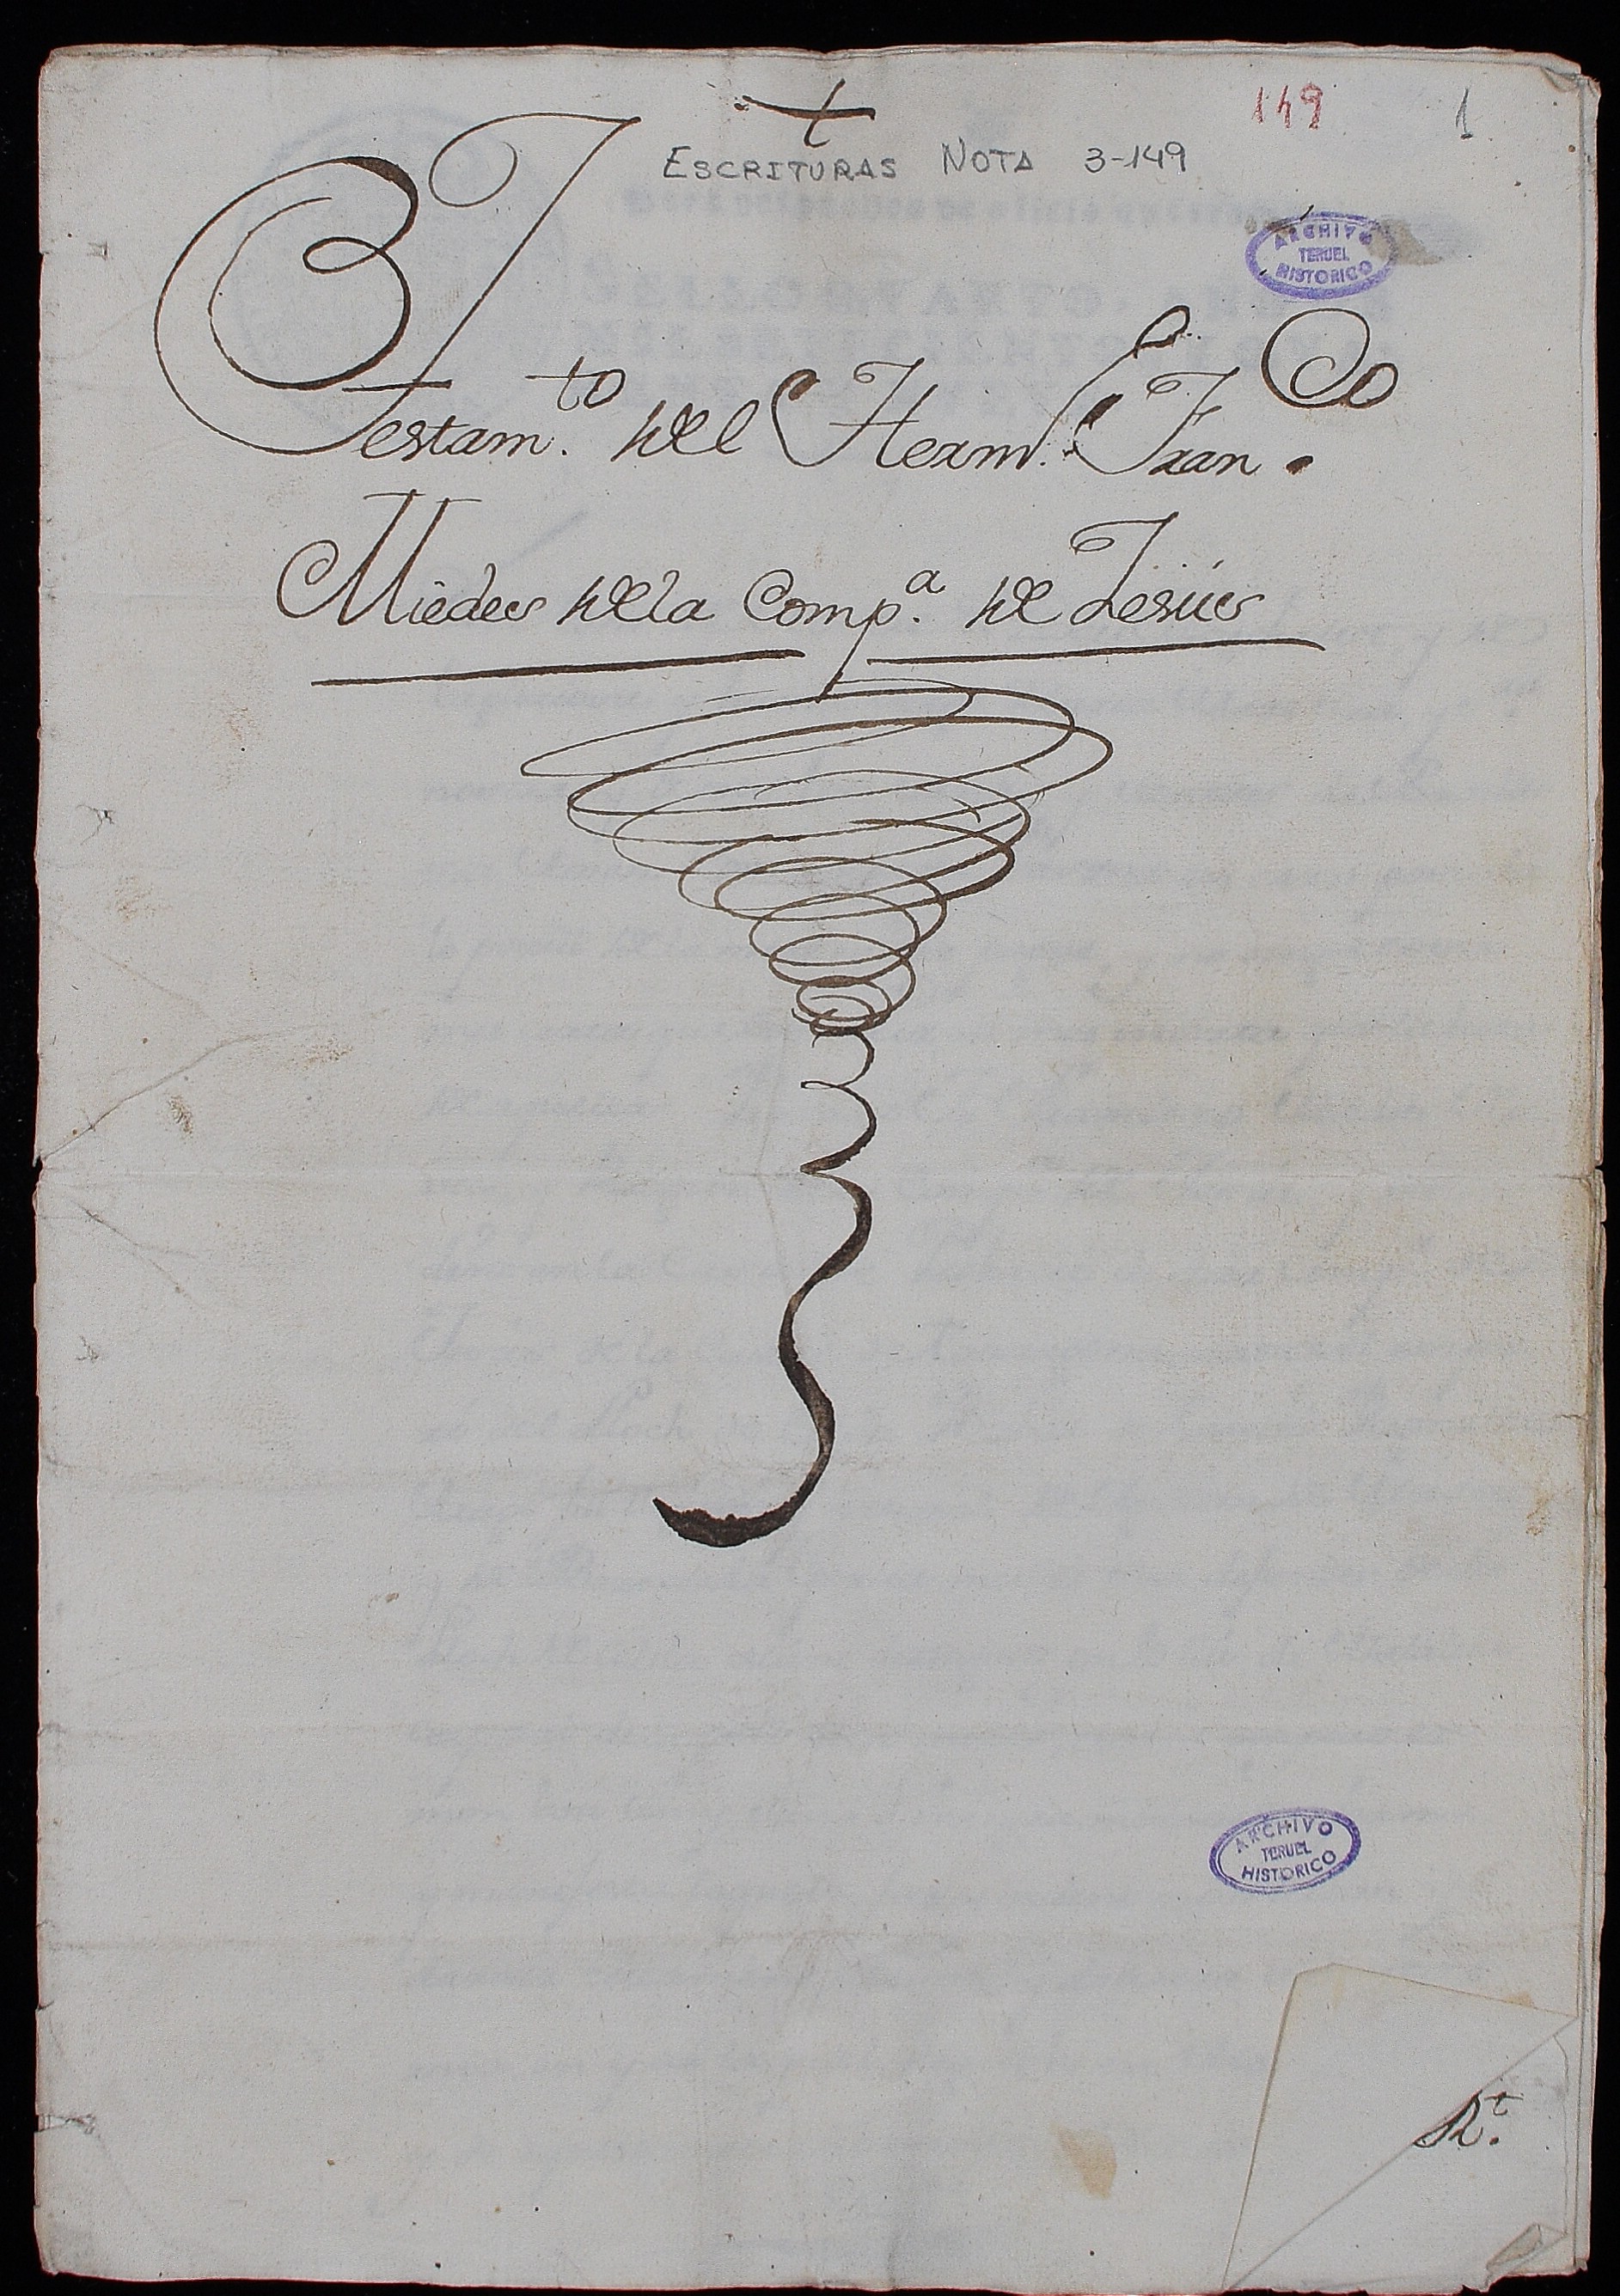 149 1
ESCRITURAS NOTA 3-149
ARCHIVO
TERUEL
HISTORICO
Testam.to del Herm.o Fran.co
Miedes dela Comp.a de Jesús
ARCHIVO
TERUEL
HISTORICO
R.t